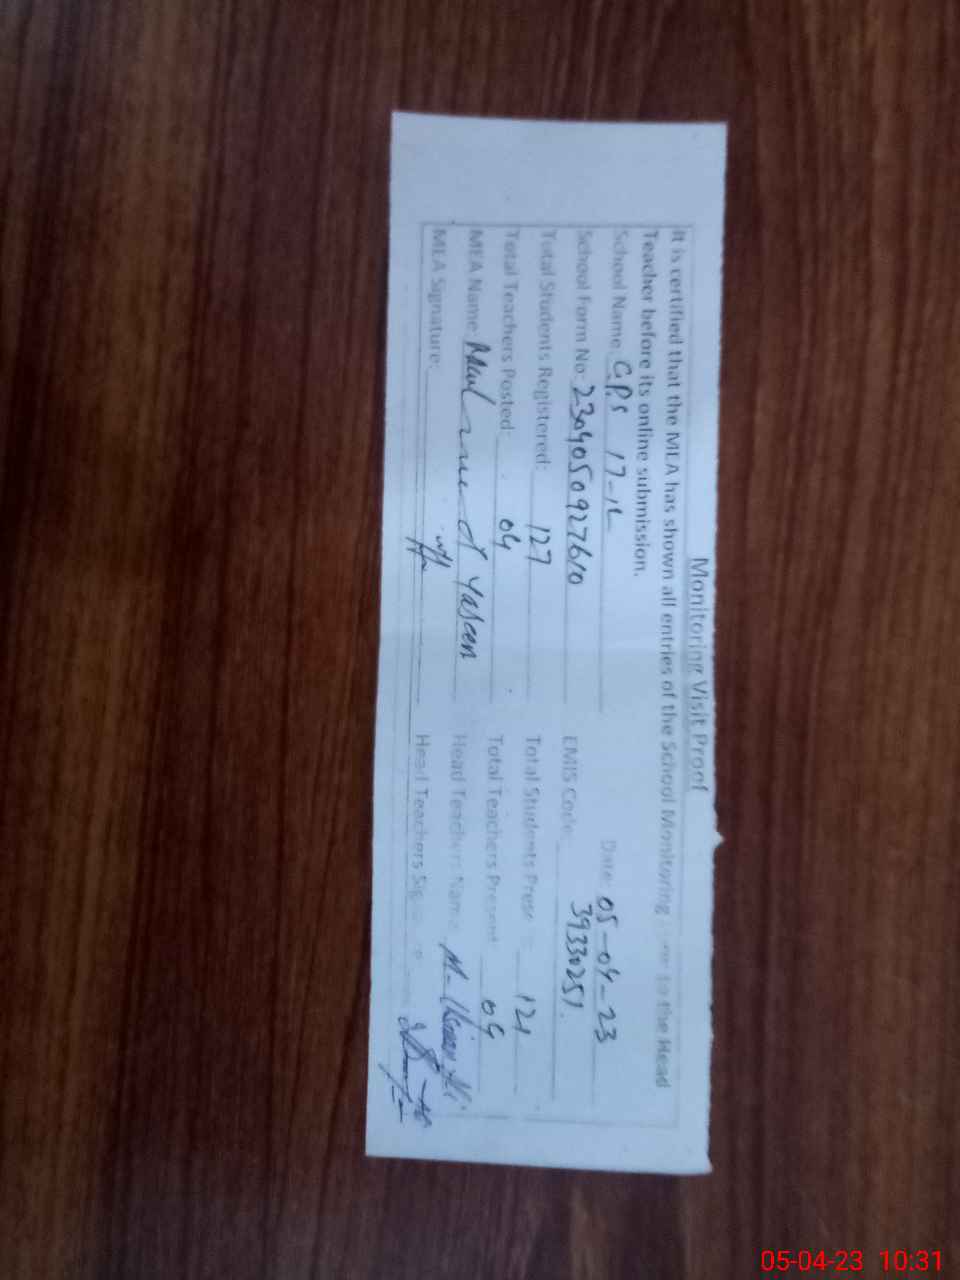 Monitoring Visit Proof
It is certified that the MEA has shown all entries of the School Monitoring to the Head
Teacher before its online submission.
School Name: GPS 17-1L Date: 05-04-23
School Form No: 2304050927610 EMIS Code: 39330251
Total Students Registered: 127 Total Students Prese 121
Total Teachers Posted: 04 Total Teachers Present 04
MEA Name: Yaseen Head Teachers Name M- Usman Ali
MEA Signature: Head Teachers Sig
05-04-23 10:31